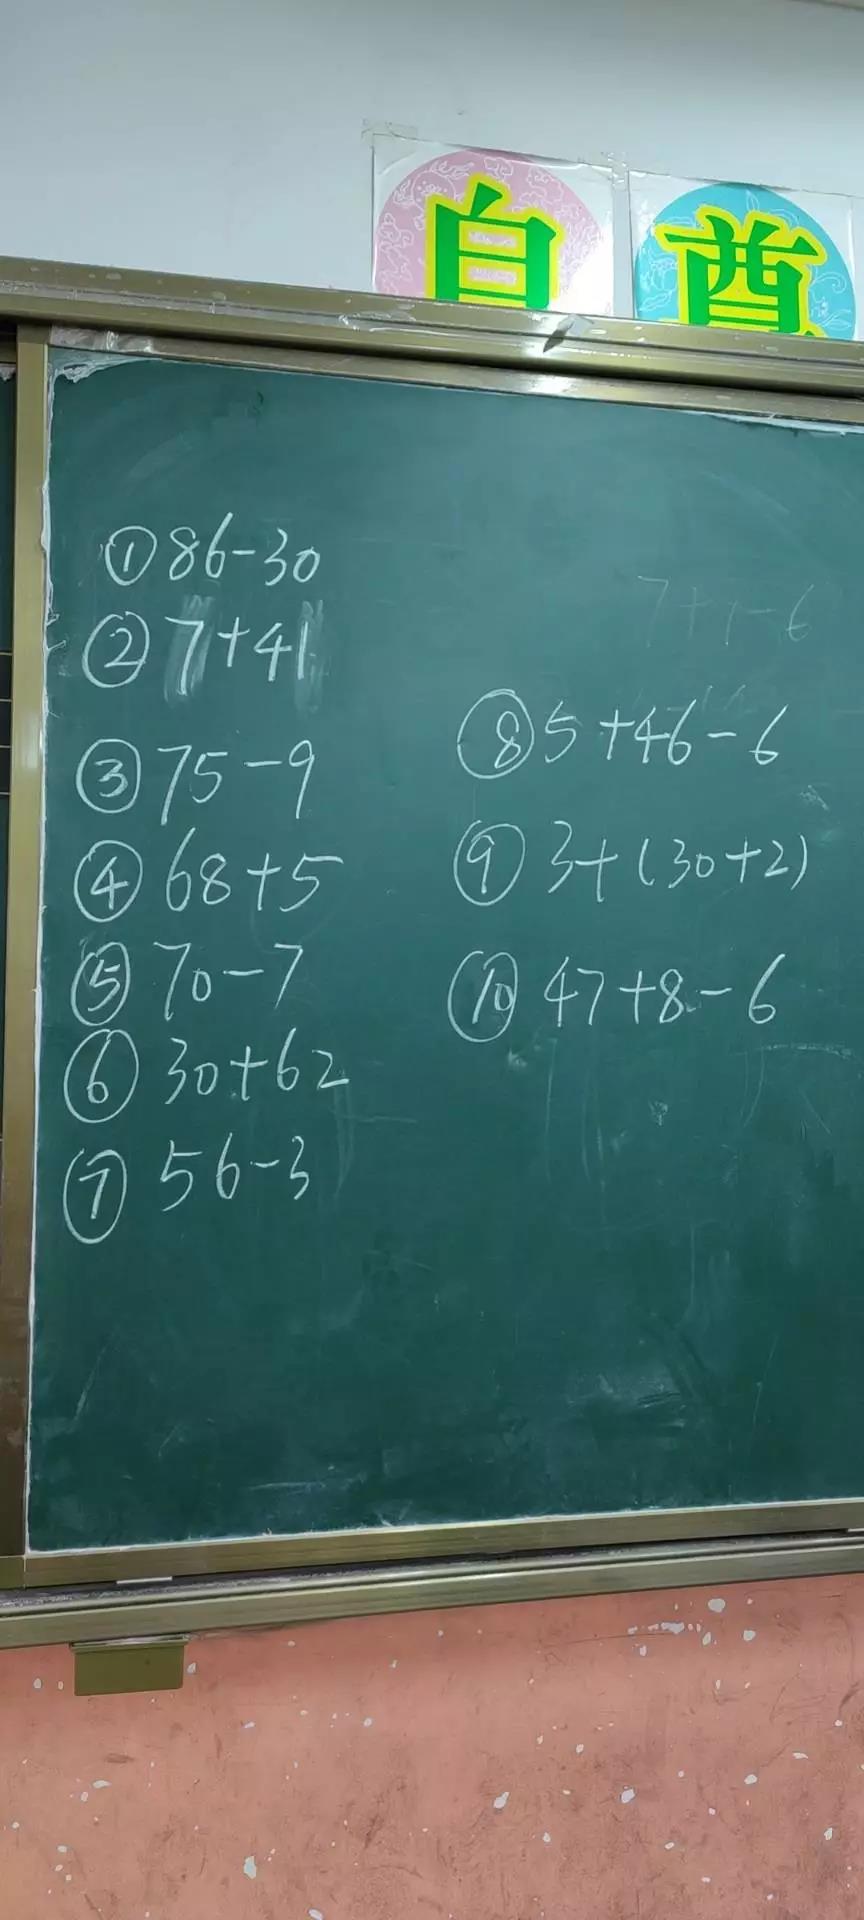 自尊
①86-30
②7+41
③75-9
④68+5
⑤70-7
⑥30+62
⑦56-3
7+1-6
⑧5+46-6
⑨3+(30+2)
⑩47+8-6